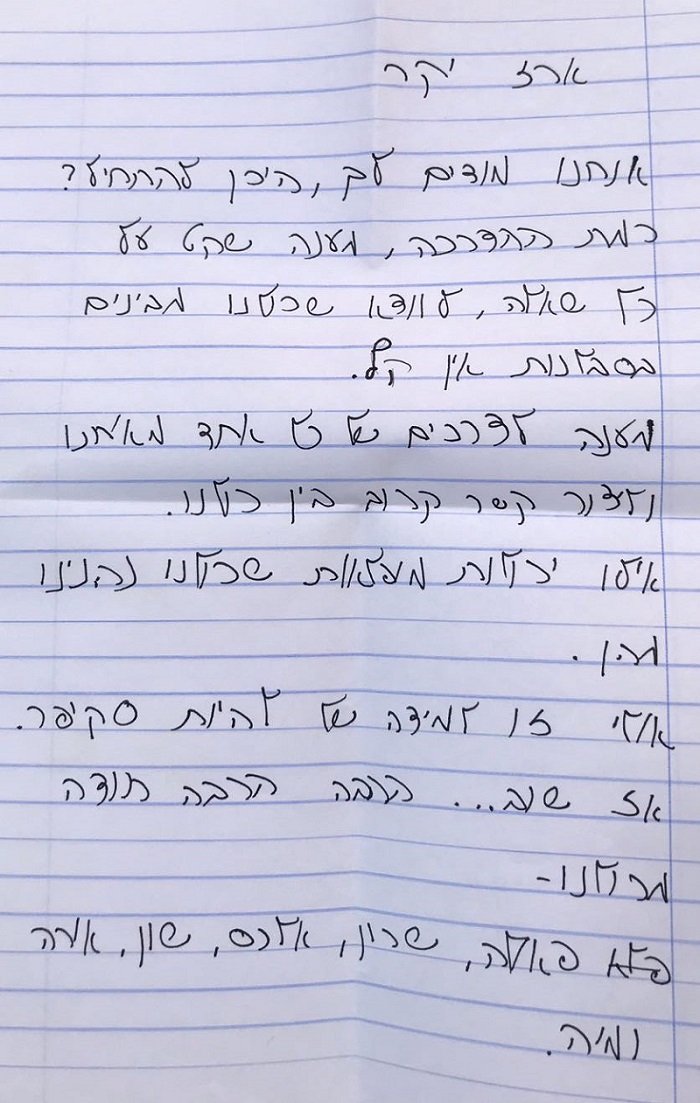 ארז יקר
אנחנו מודים לך, היכן להתחיל?
רמת ההדרכה, מענה שקט על
כל שאלה, לוודא שכולנו מבינים
בסבלנות אין קץ.
מענה לצרכים של כל אחד מאיתנו
וליצור קשר קרוב בין כולנו.
אילו יכולות מופלאות שכולנו נהנינו
מהן.
אולי זו למידה של להיות סקיפר.
אז שוב... הרבה הרבה תודה
מכולנו-
פאולה, שרון, אלכס, שון, אורה
ומיה.